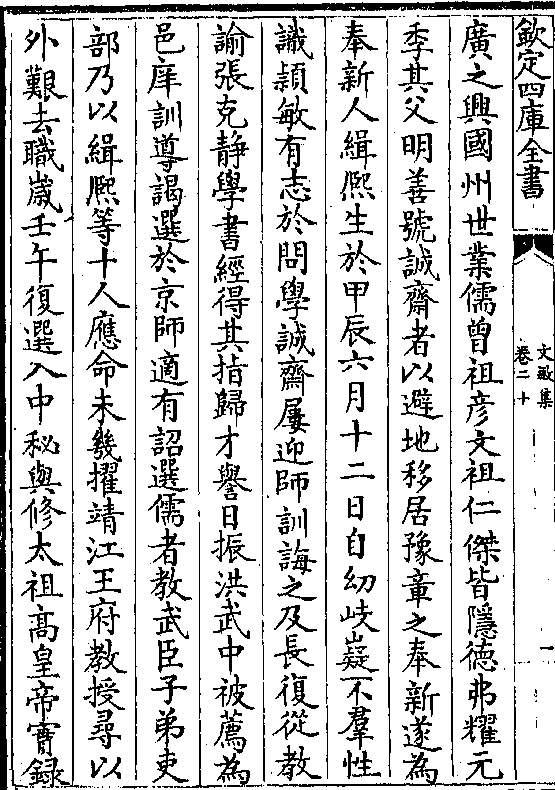 欽定四庫全書
文敏集
卷二十
廣之興國州世業儒曾祖彦文祖仁傑皆隱德弗耀元
季其父明善號誠齋者以避地移居豫章之奉新遂為
奉新人緝熈生於甲辰六月十二日自幼岐嶷不羣性
識穎敏有志於問學誠齋屢迎師訓誨之及長復從教
諭張克静學書經得其指歸才譽日振洪武中被薦為
邑庠訓導謁選於京師適有詔選儒者教武臣子弟吏
部乃以緝熈等十人應命未幾擢靖江王府教授尋以
外艱去職歲壬午復選入中秘與修太祖髙皇帝實録